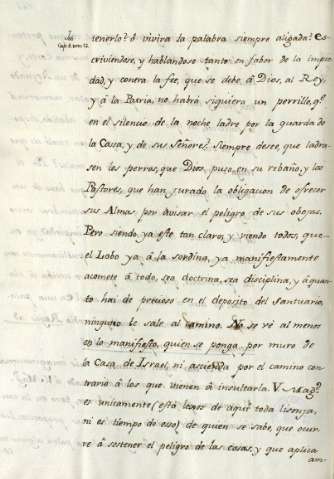 tenerlo? ó vivirá la palabra siempre aligada? Es-
criviendose, y hablandose tanto en fabor de la impie
dad, y contra la fee, que se debe á Dios, al Rey,
y á la Patria, no habrá siquiera un perrillo, qe.
en el silencio de la noche ladre por la guarda de
la Casa, y de sus Señores? Siempre deseo, que ladra-
sen los perros, que Dios puso en su rebaño, y los
Pastores, que han jurado la obligacion de ofrecer
sus Almas por avisar el peligro de sus obejas.
Pero siendo ya este tan claro, y viendo todos, que
el Lobo ya á la sordina, ya manifiestamente
acomete á todo, sea doctrina, sea disciplina, y á quan-
to hai de precioso en el deposito del Santuario
ninguno le sale al camino. No se vé al menos
en lo manifiesto, quien se ponga por muro de
la Casa de Israel, ni ascienda por el camino con-
trario á los que vienen á insultarla. V.
es unicamente (está lexos de aqui toda lisonja,
ni es tiempo de eso) de quien se sabe, que ocur-
re á sostener el peligro de las cosas, y que aplica
am-